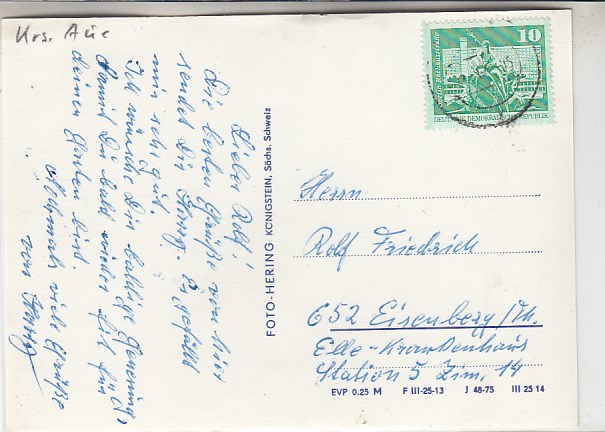 Krs. Aue
Lieber Rolf!
Die besten Grüße von hier
sendet Dir Georg. Es gefällt
mir sehr gut.
Ich wünsche Dir baldige Genesung,
damit Du bald wieder fit für
Deinen Garten bist.
Nochmals viele Grüße
von Georg
FOTO-HERING KÖNIGSTEIN, Sächs. Schweiz
10
DEUTSCHE DEMOKRATISCHE REPUBLIK
Herrn
Rolf Friedrich
652 Eisenberg/Th.
Elle-Krankenhaus
Station 5 Zim. 14
EVP 0.25 M F III-25-13 J 48-75 III 25 14